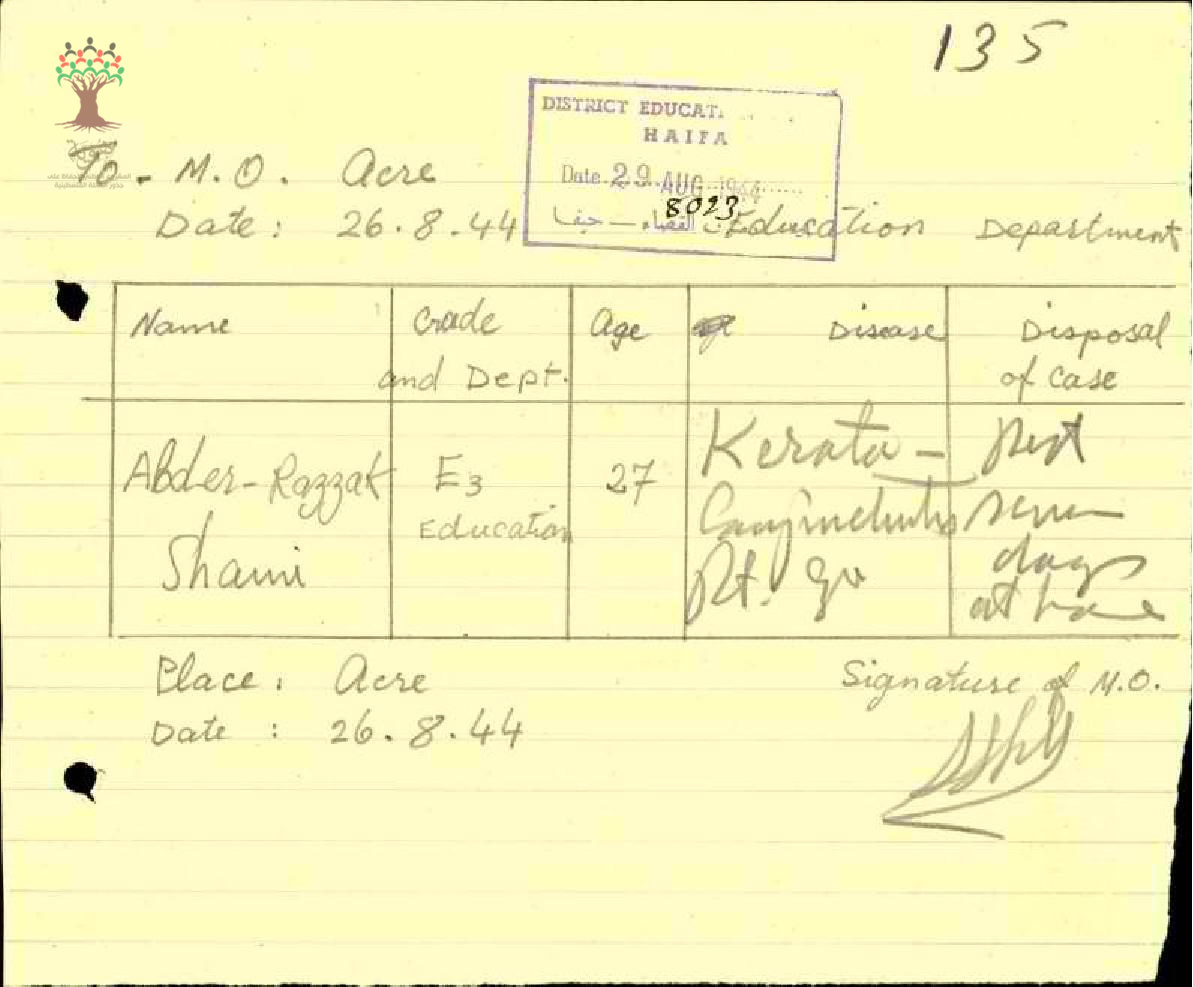 135
DISTRICT EDUCAT
HAIFA
Date 29 AUG 1944
8023
القضاء — حيفا
To - M.O. Acre
Date: 26.8.44 Education Department
Name Grade and Dept. Age Disease Disposal of Case
Abder-Razzak Shami E3 Education 27 Kerato-Conjunctivitis Rt. Eye Rest seven days at home
Place: Acre Signature of M.O.
Date : 26.8.44